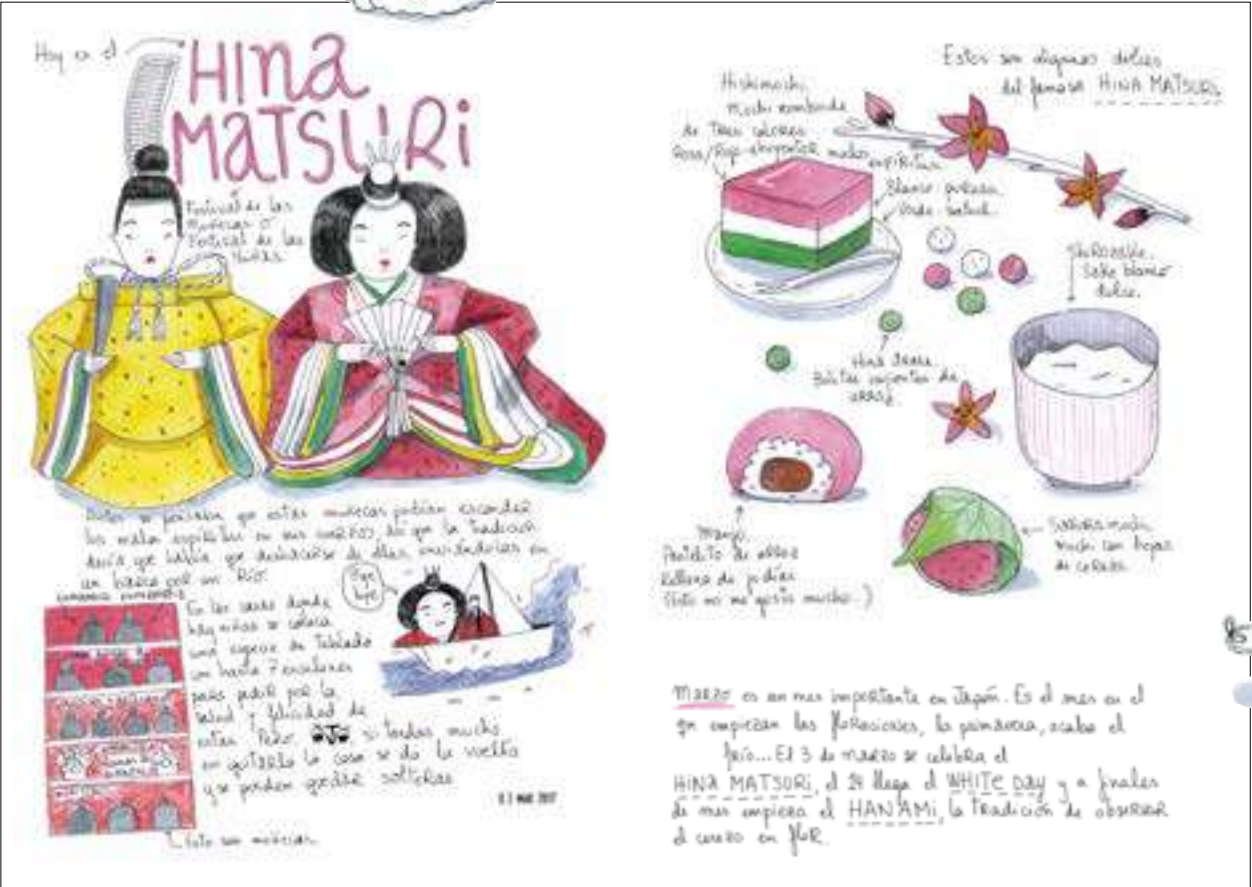 Hoy es el
HINA
MATSURI
Festival de las
Muñecas o
Festival de las
niñas
Antes se pensaba que estas muñecas podían esconder
los malos espíritus en sus cuerpos, así que la tradición
decía que había que deshacerse de ellas enviándolas en
un barco por un Río.
Bye
bye
En las casas donde
hay niñas se coloca
una especie de tablado
con hasta 7 escalones
para pedir por la
salud y felicidad de
estas. Pero OJO, si tardas mucho
en quitarlo la cosa se da la vuelta
y se pueden quedar solteras.
Esto son muñecas.
Estos son algunos dulces
del famoso HINA MATSURI.
Hishimochi.
Mochi romboide
de tres colores
Rosa/Rojo-ahuyentar malos espíritus
Blanco-pureza.
Verde-salud.
Shirozake.
Sake blanco
dulce.
Hina
Bolitas de
arroz.
Manjū.
Pastelito de arroz
Relleno de judías
(Esto no me gusta mucho..)
Sakuramochi
mochi con hojas
de cerezo.
MARZO es un mes importante en Japón. Es el mes en el
que empiezan las floraciones, la primavera, acaba el
frío... El 3 de marzo se celebra el
HINA MATSURI, el 14 llega el WHITE DAY y a finales
de mes empieza el HANAMI, la tradición de observar
el cerezo en flor.